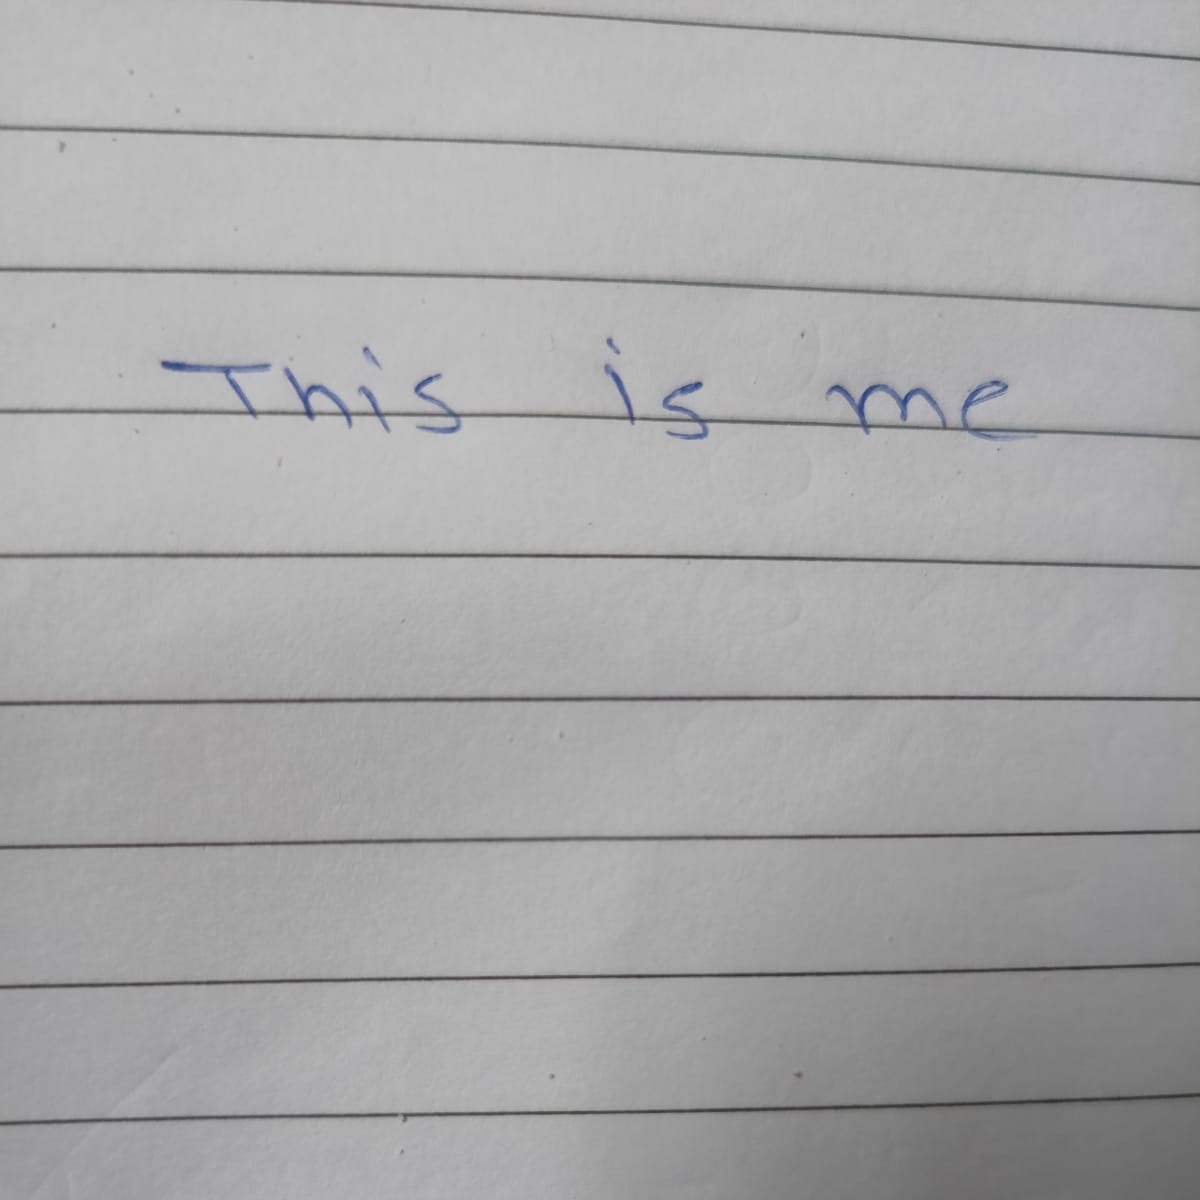 This is me